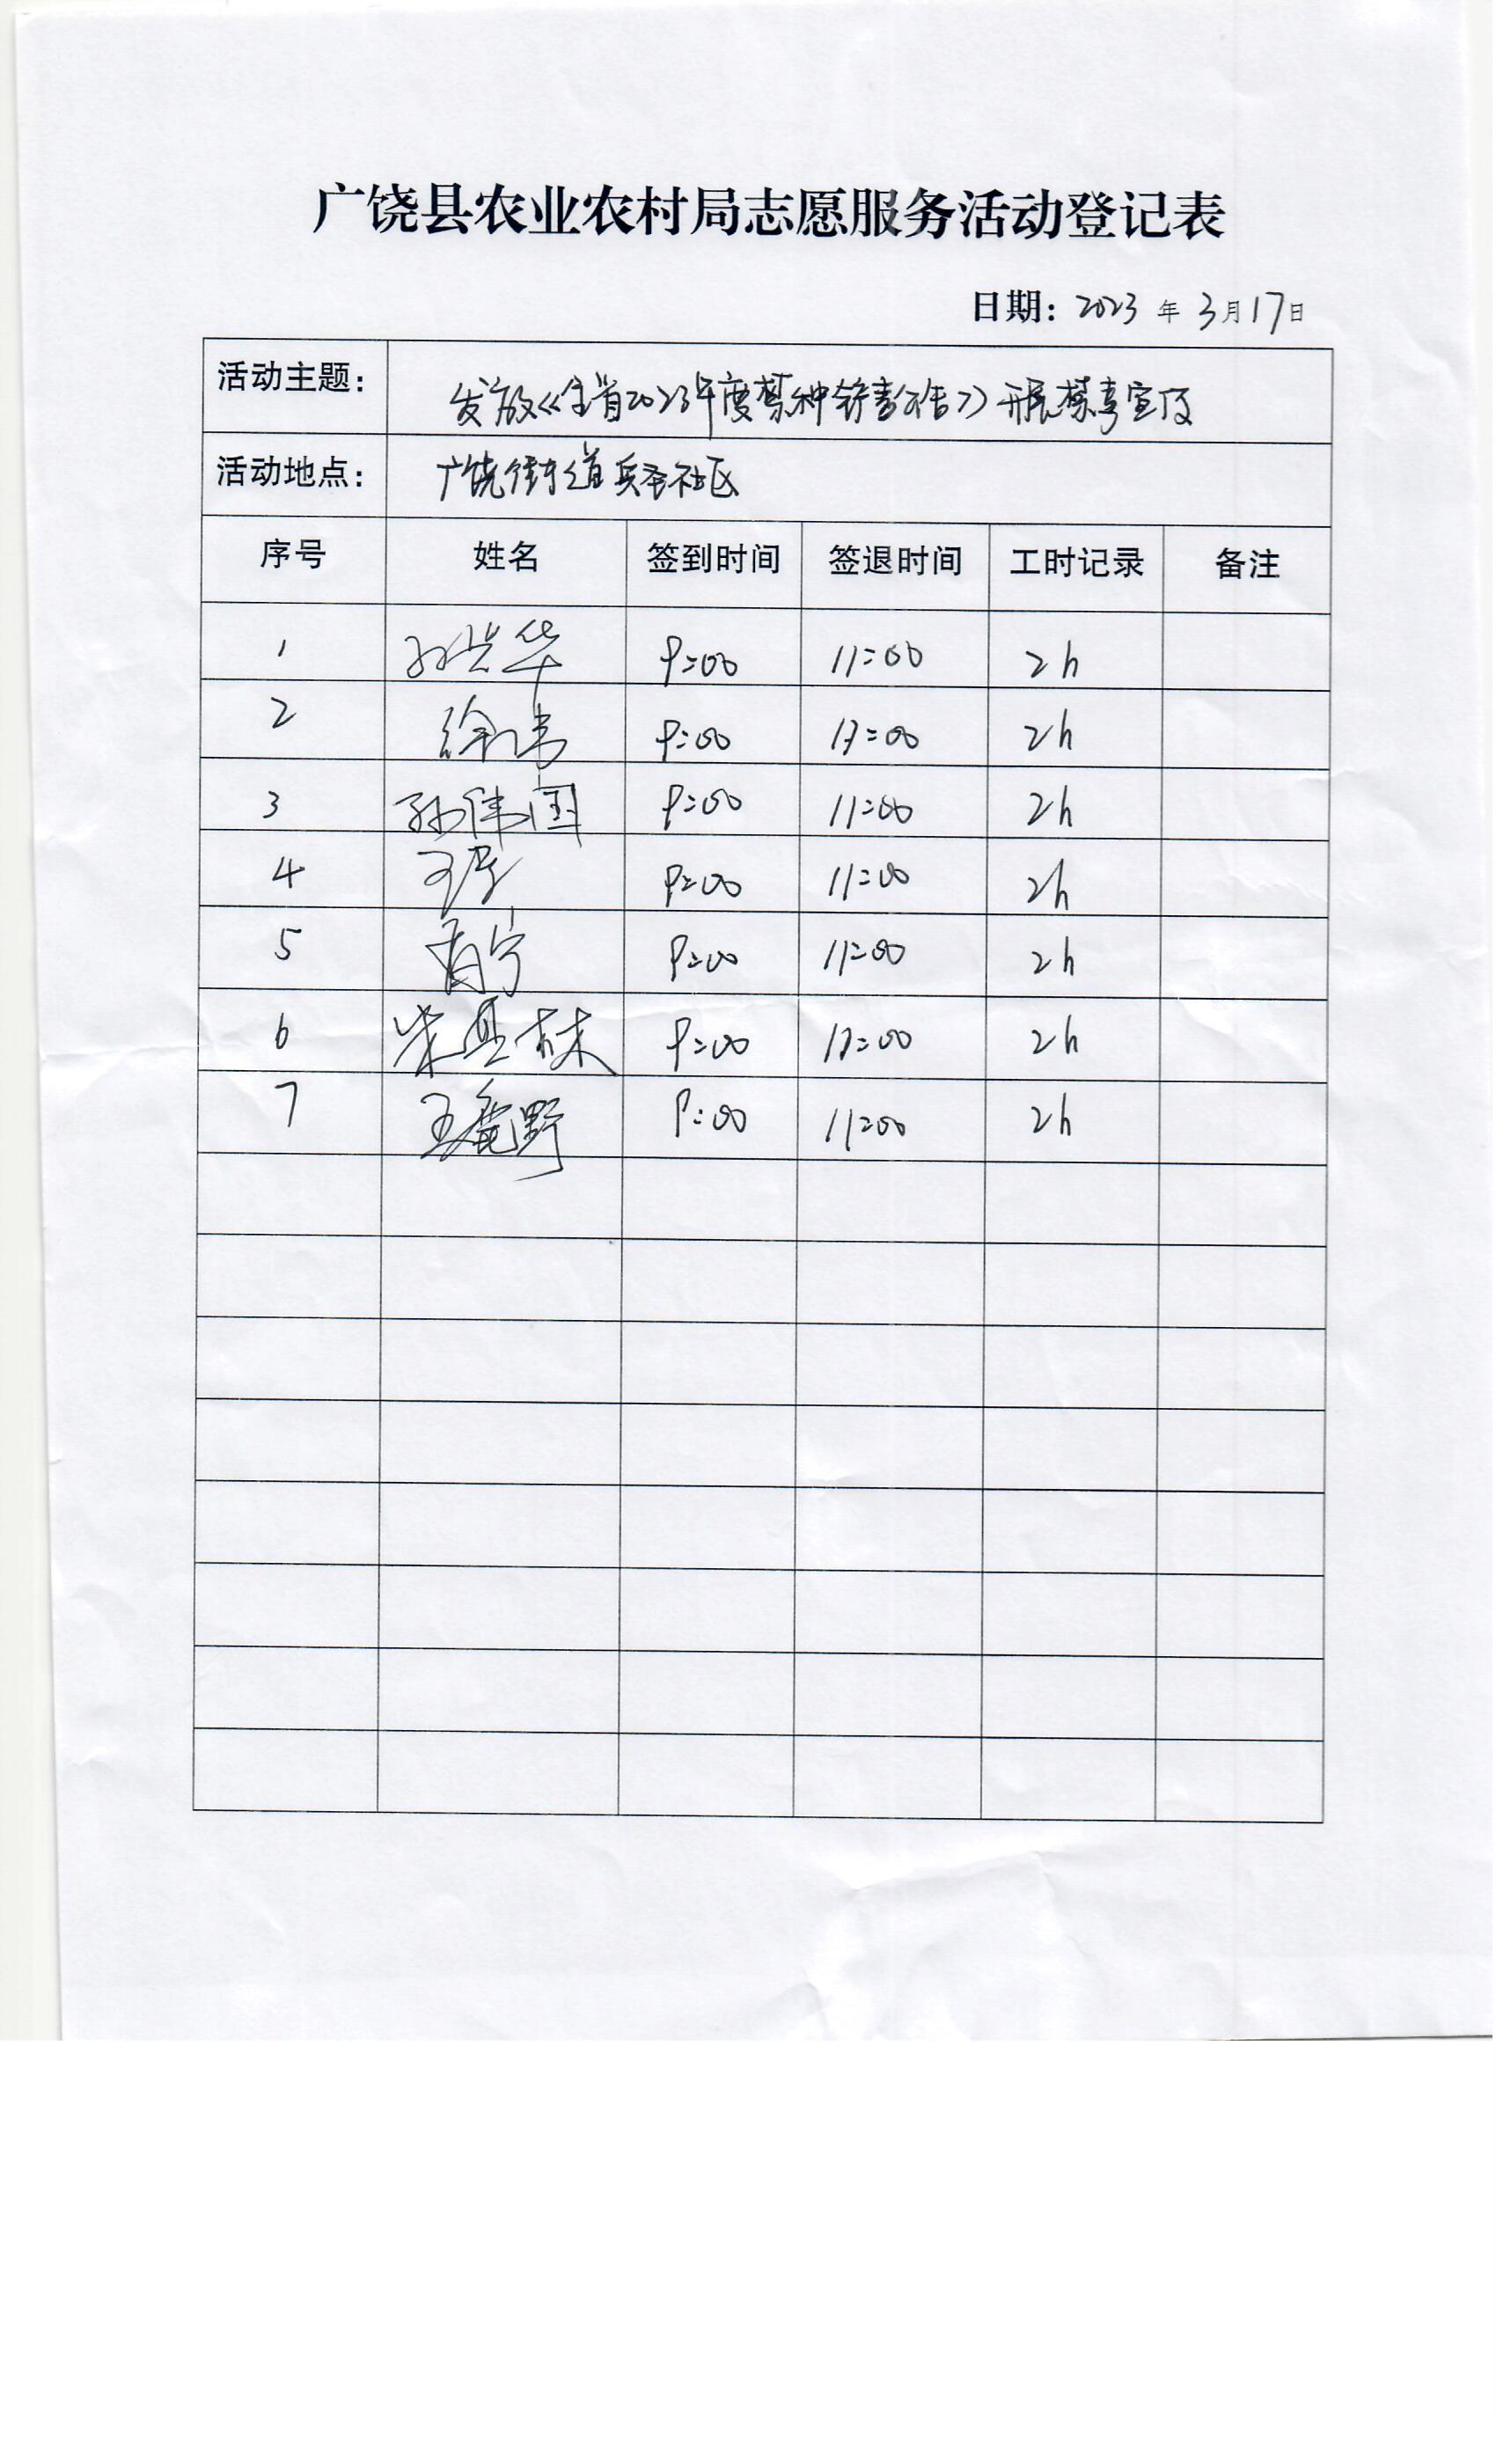 广饶县农业农村局志愿服务活动登记表
日期: 2023 年 3月17日
活动主题: 发放《全省2023年度禁种铲毒公告》开展禁毒宣传
活动地点: 广饶街道兵圣社区
序号 姓名 签到时间 签退时间 工时记录 备注
1 9:00 11:00 2h
2 9:00 11:00 2h
3 孙伟国 9:00 11:00 2h
4 9:00 11:00 2h
5 9:00 11:00 2h
6 9:00 11:00 2h
7 王鹿野 9:00 11:00 2h